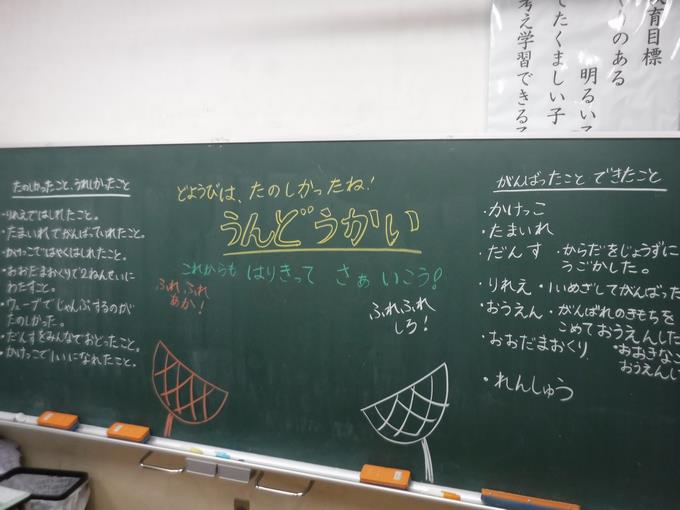 教育目標
りのある
明るい子
てたくましい子
考え学習できる子
たのしかったこと、うれしかったこと
・りれえではしれたこと。
・たまいれでがんばっていれたこと。
・かけっこではやくはしれたこと。
・おおだまおくりで2ねんせいに
わたすこと。
・ウェーブでじゃんぷするのが
たのしかった。
・だんすをみんなでおどったこと。
・かけっこで1いになれたこと。
どようびは、たのしかったね!
うんどうかい
これからも はりきって さぁ いこう!
ふれふれ
あか!
ふれふれ
しろ!
がんばったこと できたこと
・かけっこ
・たまいれ
・だんす ・からだをじょうずに
うごかした。
・りれえ ・1いめざしてがんばった
・おうえん ・がんばれのきもちを
こめておうえんした
・おおだまおくり ・おおきなこ
おうえんし
・れんしゅう